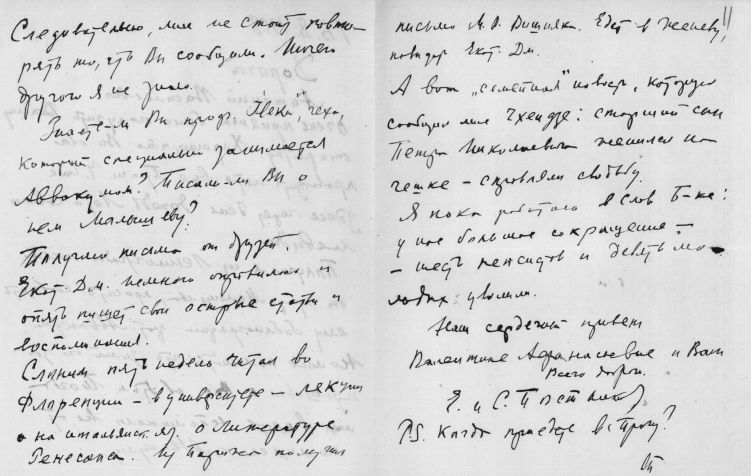 Следовательно, мне не стоит повто-
рять то, что Вы сообщили. Ничего
другого я не знаю.
Знаете-ли Вы проф. чеха,
который специально занимается
Аввакумом? Писали-ли Вы о
нем Малышеву?
Получил письма от друзей
Екат. Дм. немного оправилась и
опять пишет свои острые статьи и
воспоминания.
Слоним пять недель читал во
Флоренции – в университете – лекции
на итальянск. яз. о Литературе
Ренесанса. Из Парижа получил
11
письмо М. В. Вишняка. Едет в Женеву,
повидав Екат. Дм.
А вот „семейная" новость, которую
сообщил мне Чхеидзе: старший сын
Петра Николаевича женился на
чешке – справляли свадьбу.
Я пока работаю в Слав. Б-ке:
у нас большое сокращение –
– шесть пенсистов и девять мо-
лодых уволили.
Наш сердечный привет
Валентине Афанасьевне и Вам
Всего доброго.
Е. и С. Постников
PS. Когда приедете в Прагу?